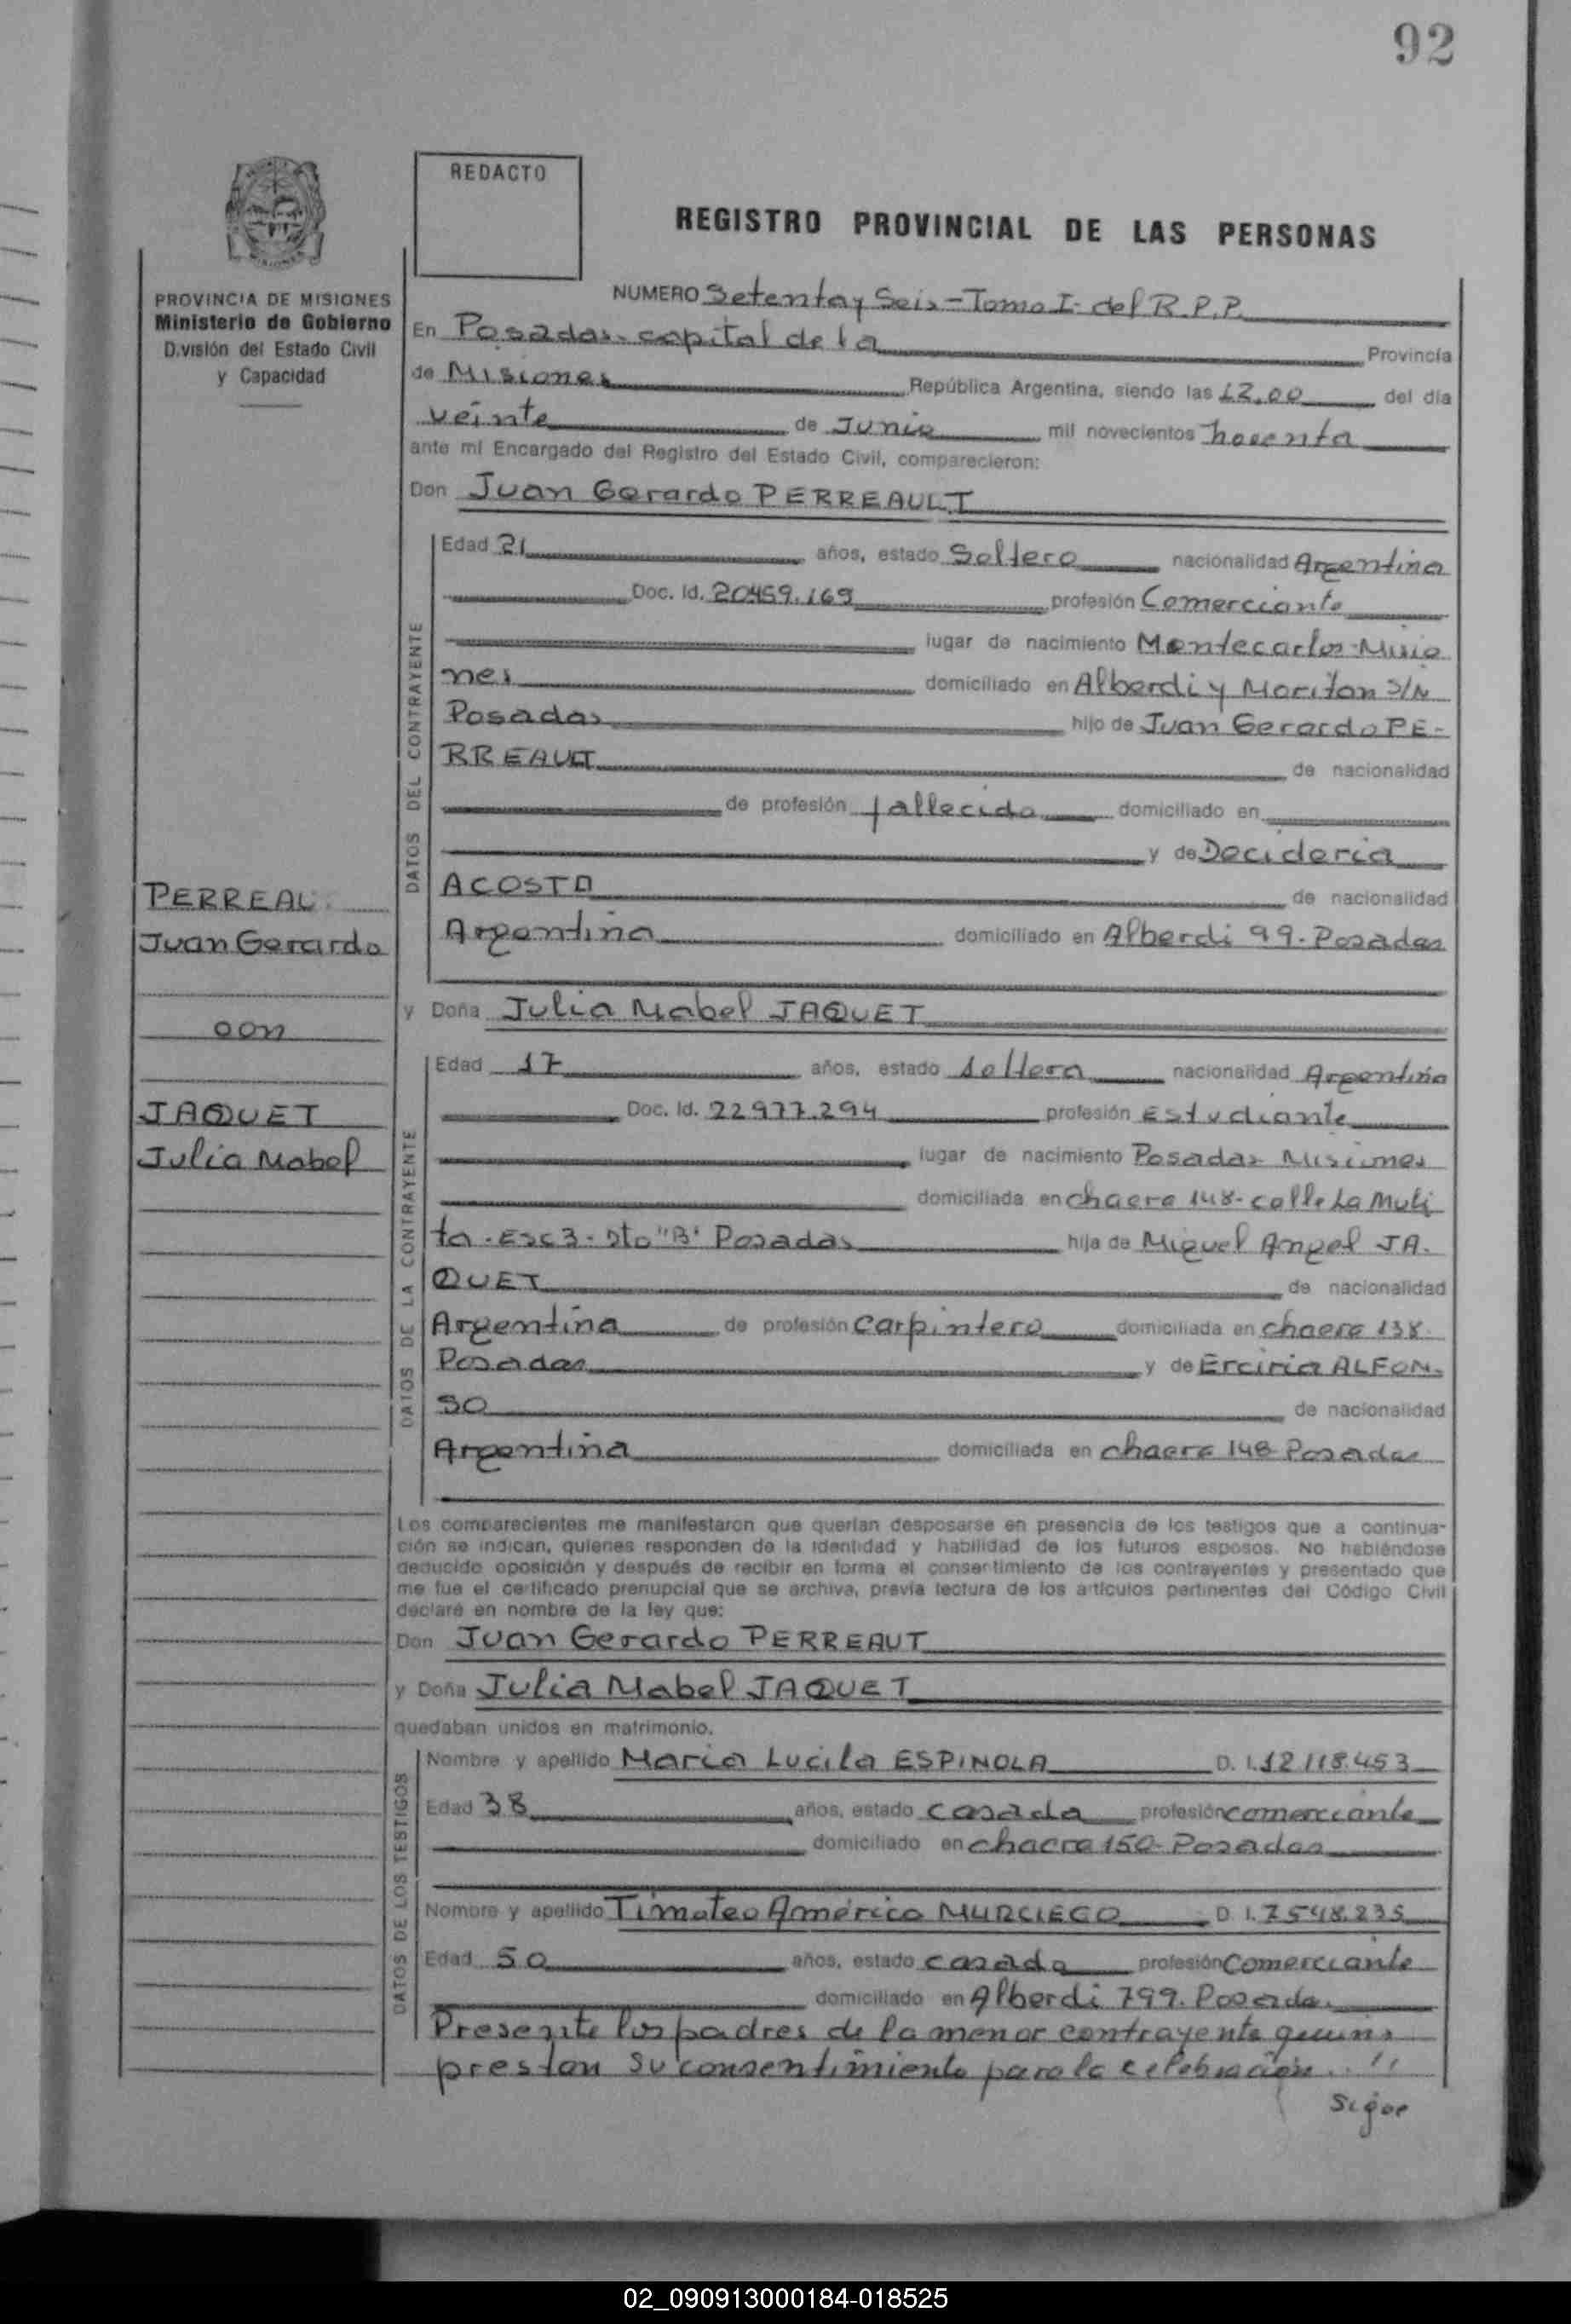 92
REDACTO
REGISTRO PROVINCIAL DE LAS PERSONAS
PROVINCIA DE MISIONES
Ministerio de Gobierno
División del Estado Civil
y Capacidad
NUMERO Setenta y Seis - Tomo I - del R.P.P.
En Posadas - capital de la Provincia
de Misiones República Argentina, siendo las 12,00 del día
veinte de Junio mil novecientos novento
ante mi Encargado del Registro del Estado Civil, comparecieron:
Don Juan Gerardo PERREAULT
DATOS DEL CONTRAYENTE
Edad 21 años, estado Soltero nacionalidad Argentina
Doc. Id. 20459.169 profesión Comerciante
lugar de nacimiento Montecarlos-Misio
nes domiciliado en Alberdi y Moritan S/N
Posadas hijo de Juan Gerardo PE-
RREAULT de nacionalidad
de profesión fallecido domiciliado en
y de Decideria
ACOSTA de nacionalidad
Argentina domiciliado en Alberdi 99-Posadas
PERREAU
Juan Gerardo
con
JAQUET
Julia Mabel
y Doña Julia Mabel JAQUET
DATOS DE LA CONTRAYENTE
Edad 17 años, estado soltera nacionalidad Argentina
Doc. Id. 22977.294 profesión Estudiante
lugar de nacimiento Posadas Misiones
domiciliada en chacra 148- calle La Muli
ta - Esc 3 - Dto "B" Posadas hija de Miguel Angel JA-
QUET de nacionalidad
Argentina de profesión Carpintero domiciliada en chacra 138-
Posadas y de Erciria ALFON-
SO de nacionalidad
Argentina domiciliada en chacra 148 Posadas
Los comparecientes me manifestaron que querían desposarse en presencia de los testigos que a continua-
ción se indican, quienes responden de la identidad y habilidad de los futuros esposos. No habiéndose
deducido oposición y después de recibir en forma el consentimiento de los contrayentes y presentado que
me fue el certificado prenupcial que se archiva, previa lectura de los artículos pertinentes del Código Civil
declaré en nombre de la ley que:
Don Juan Gerardo PERREAUT
y Doña Julia Mabel JAQUET
quedaban unidos en matrimonio.
DATOS DE LOS TESTIGOS
Nombre y apellido Maria Lucila ESPINOLA D. I. 12.118.453
Edad 38 años, estado casada profesión comerciante
domiciliado en chacra 150-Posadas
Nombre y apellido Timoteo Américo MURCIEGO D. I. 7548.235
Edad 50 años, estado casado profesión Comerciante
domiciliado en Alberdi 799. Posadas
Presente los padres de la menor contrayente quiens
prestan su consentimiento para la celebración..//
Sigue
02_090913000184-018525